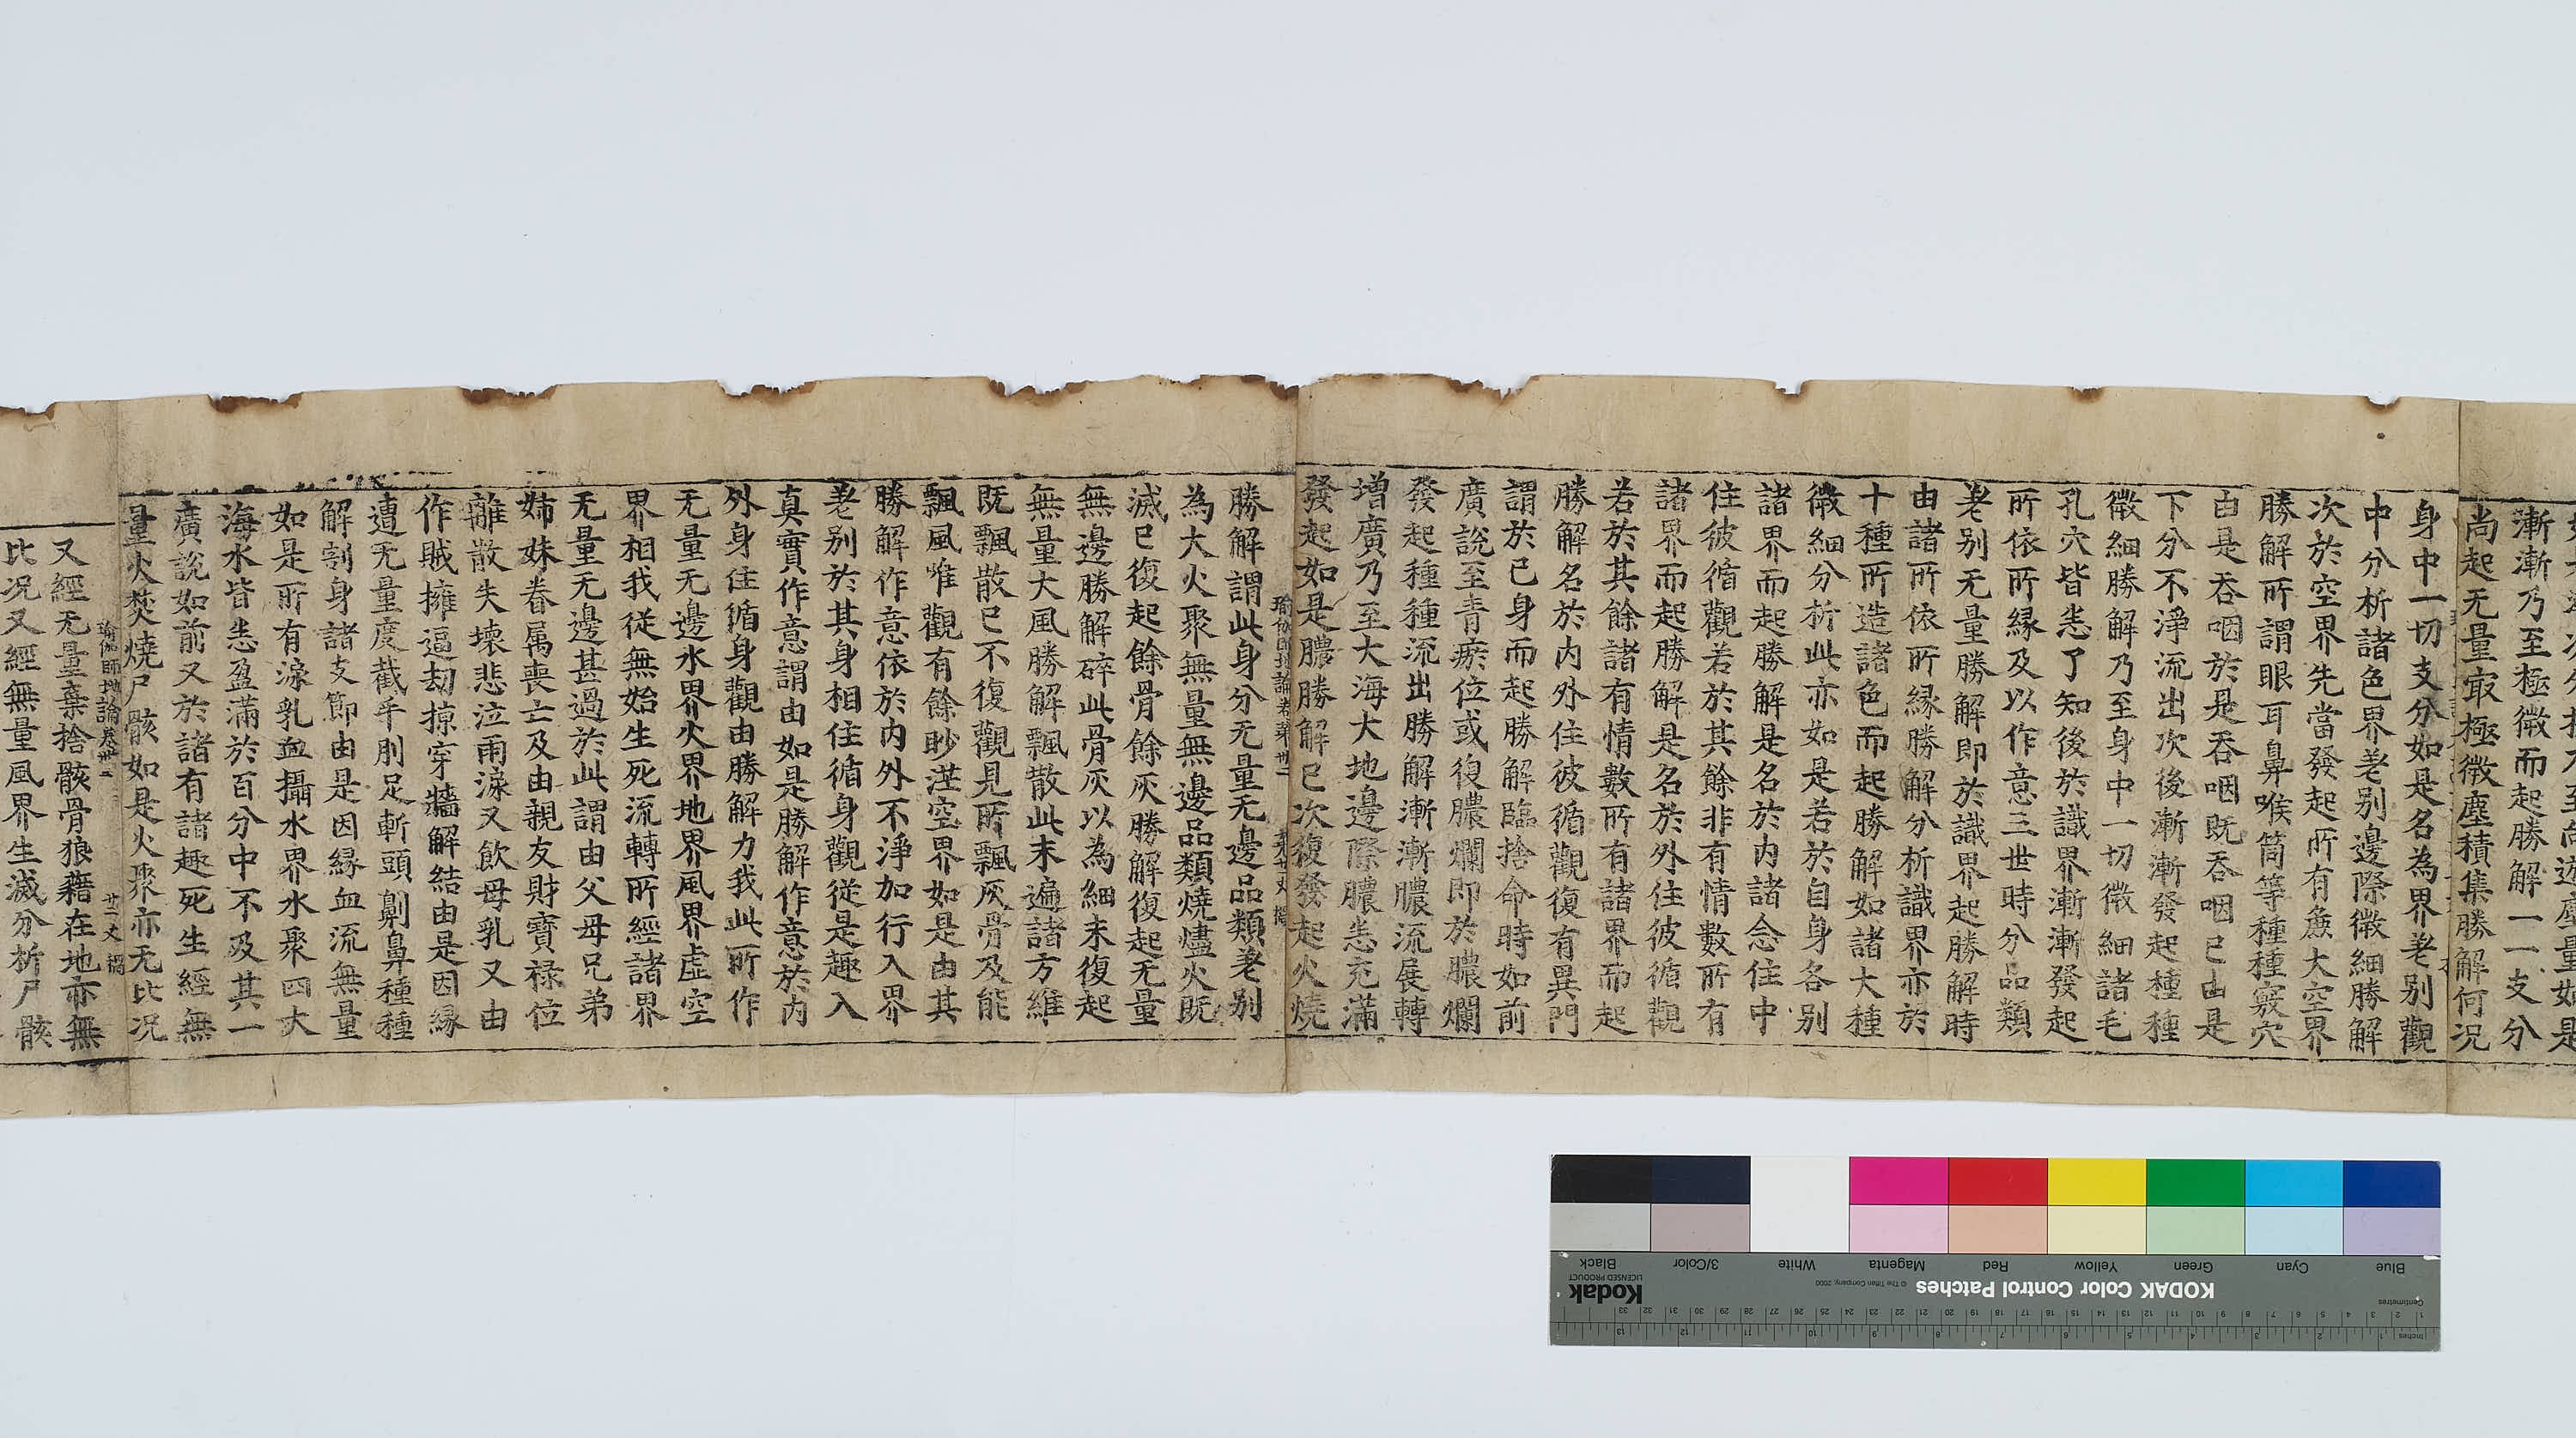 漸漸乃至極微而起勝解一一支分
尚起无量㝡極微塵積集勝解何况
身中一切支分如是名為界差别觀
中分析諸色界差别邊際微細勝解
次於空界先當發起所有麁大空界
勝解所謂眼耳鼻喉筒等種種竅穴
由是吞咽於是吞咽既吞咽已由是
下分不淨流出次後漸漸發起種種
微細勝解乃至身中一切微細諸毛
孔穴皆悉了知後於識界漸漸發起
所依所縁及以作意三世時分品類
差别无量勝解即於識界起勝解時
由諸所依所縁勝解分析識界亦於
十種所造諸色而起勝解如諸大種
微細分析此亦如是若於自身各别
諸界而起勝解是名於内諸念住中
住彼循觀若於其餘非有情數所有
諸界而起勝解是名於外住彼循觀
若於其餘諸有情數所有諸界而起
勝解名於内外住彼循觀復有異門
謂於己身而起勝解臨捨命時如前
廣說至青瘀位或復膿爛即於膿爛
發起種種流出勝解漸漸膿流展轉
增廣乃至大海大地邊際膿悉充滿
發起如是膿勝解已次復發起火燒
瑜伽師地論卷第卅三
勝解謂此身分无量无邊品類差别
為大火聚無量無邊品類燒燼火既
滅已復起餘骨餘灰勝解復起无量
無邊勝解碎此骨灰以為細末復起
無量大風勝解飄散此末遍諸方維
既飄散已不復觀見所飄灰骨及能
飄風唯觀有餘眇茫空界如是由其
勝解作意依於内外不淨加行入界
差别於其身相住循身觀從是趣入
真實作意謂由如是勝解作意於内
外身住循身觀由勝解力我此所作
无量无邊水界火界地界風界虛空
界相我從無始生死流轉所經諸界
无量无邊甚過於此謂由父母兄弟
姉妹眷属喪亡及由親友財寶禄位
離散失壊悲泣雨淚又飲母乳又由
作賊擁逼劫掠穿牆解結由是因縁
遭无量度截手刖足斬頭劓鼻種種
解割身諸支節由是因縁血流無量
如是所有淚乳血攝水界水聚四大
海水皆悉盈滿於百分中不及其一
廣說如前又於諸有諸趣死生經無
量火焚燒尸骸如是火聚亦无比况
瑜伽師地論卷卅三
廿二丈
又經无量棄捨骸骨狼藉在地亦無
比况又經無量風界生滅分析尸骸